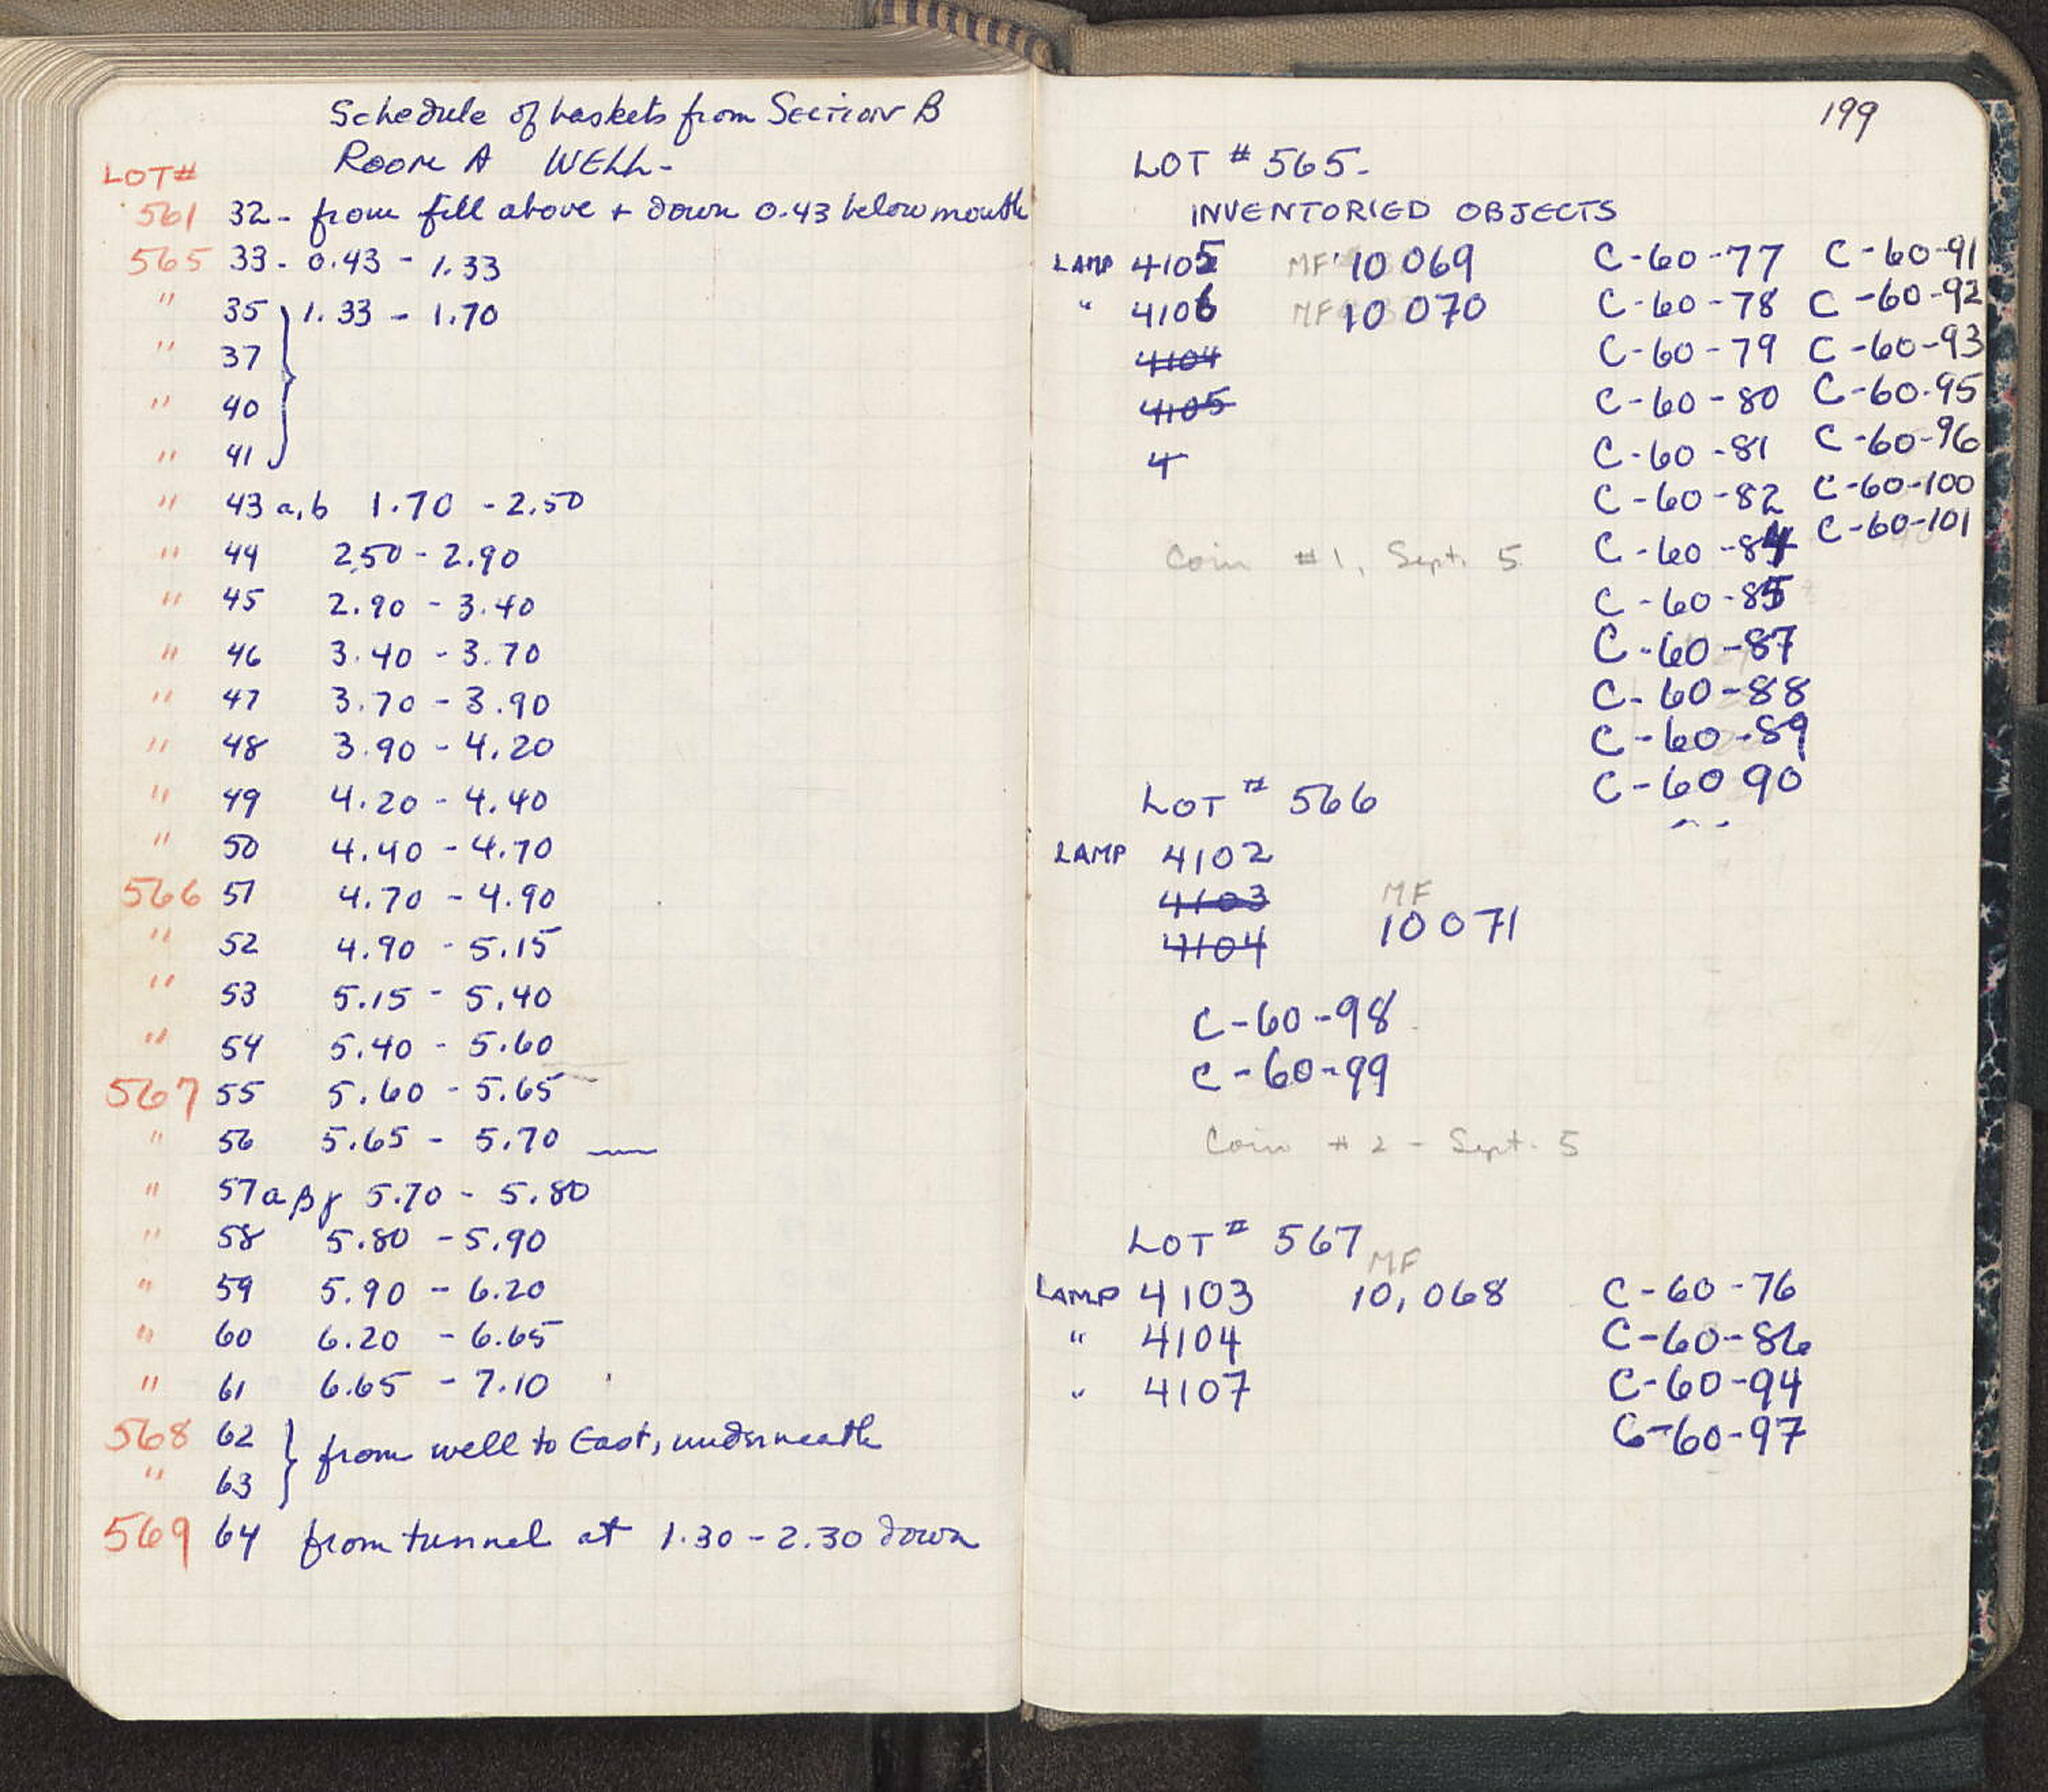 Schedule of baskets from Section B
Room A WELL-
LOT#
561 32- from fill above + down 0.43 below mouth
565 33- 0.43 - 1.33
" 35 1.33 - 1.70
" 37
" 40
" 41
" 43 a,b 1.70 - 2.50
" 44 2.50 - 2.90
" 45 2.90 - 3.40
" 46 3.40 - 3.70
" 47 3.70 - 3.90
" 48 3.90 - 4.20
" 49 4.20 - 4.40
" 50 4.40 - 4.70
566 51 4.70 - 4.90
" 52 4.90 - 5.15
" 53 5.15 - 5.40
" 54 5.40 - 5.60
567 55 5.60 - 5.65
" 56 5.65 - 5.70
" 57 α β γ 5.70 - 5.80
" 58 5.80 - 5.90
" 59 5.90 - 6.20
" 60 6.20 - 6.65
" 61 6.65 - 7.10
568 62 from well to East, underneath
" 63
569 64 from tunnel at 1.30 - 2.30 down
199
LOT # 565-
INVENTORIED OBJECTS
LAMP 4105 MF 10 069 C-60-77 C-60-91
" 4106 MF 10 070 C-60-78 C-60-92
4104 C-60-79 C-60-93
4105 C-60-80 C-60-95
4 C-60-81 C-60-96
C-60-82 C-60-100
Coin #1, Sept. 5 C-60-84 C-60-101
C-60-85
C-60-87
C-60-88
C-60-89
C-60 90
LOT # 566
LAMP 4102
4103 MF
4104 10071
C-60-98
C-60-99
Coin #2 - Sept. 5
LOT # 567
MF
LAMP 4103 10,068 C-60-76
" 4104 C-60-86
" 4107 C-60-94
C-60-97